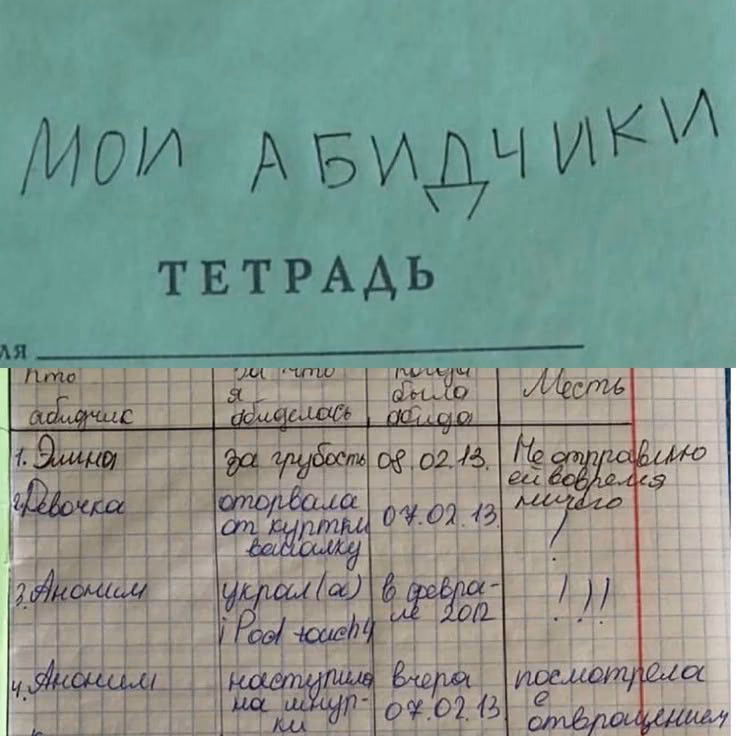 МОИ АБИДЧИКИ
ТЕТРАДЬ
ля
Кто
абидчик
За что
я
абиделась
когда
было
абида
Месть
1. Элина
за грубость
08.02.13.
Не отправлю
ей вовремя
ничего
2. Девочка
оторвала
от куртки
07.02.13.
!
3. Аноним
украл(а)
iPod touch 4
в февра-
ле 2012
!!!
4. Аноним
наступила
на шнур-
ки
вчера
07.02.13.
посмотрела
с
отвращением